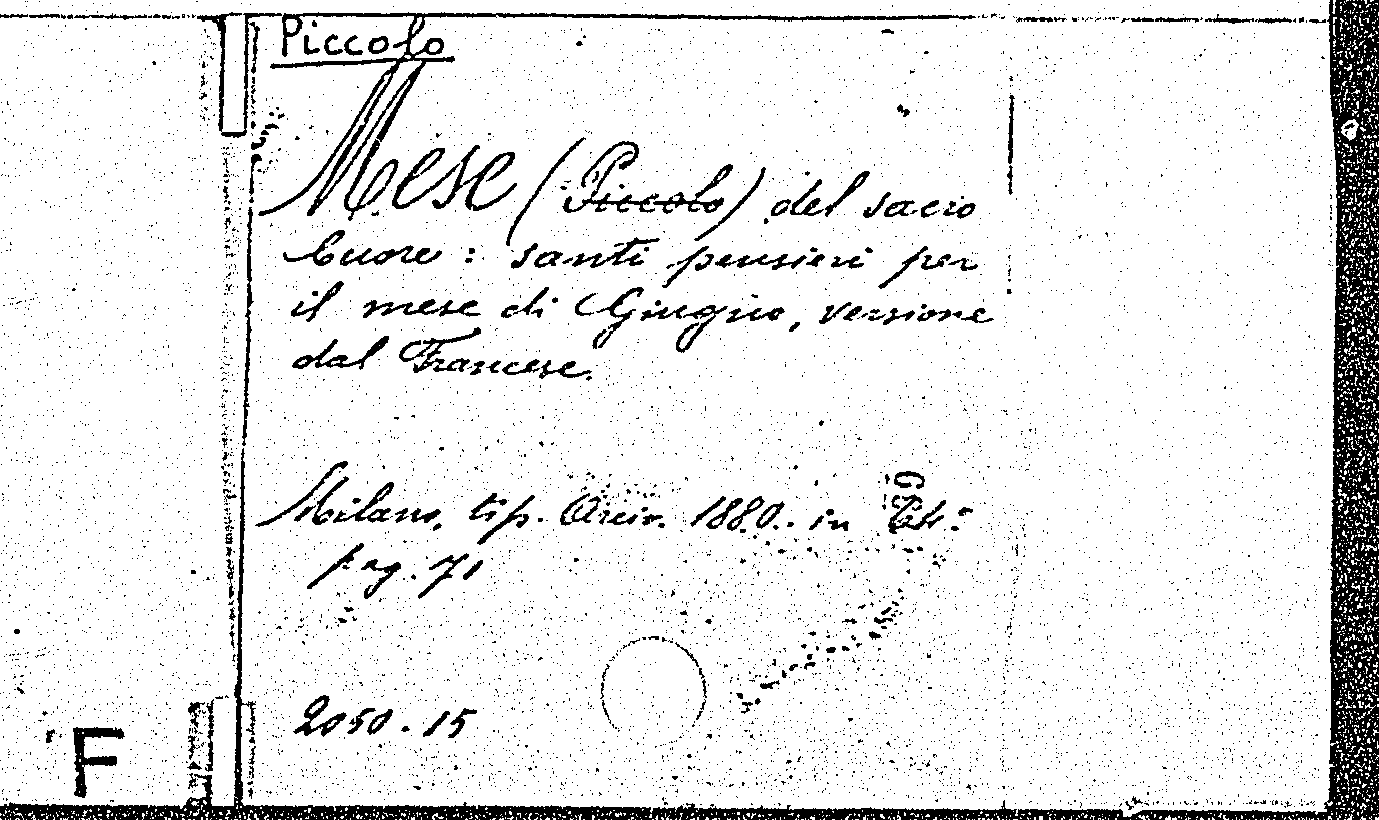 Piccolo
Mese (Piccolo) del sacro
Cuore : santi pensieri per
il mese di Giugno, versione
dal Francese.
Milano, tip. Arciv. 1880. in
pag. 71
2050.15
F